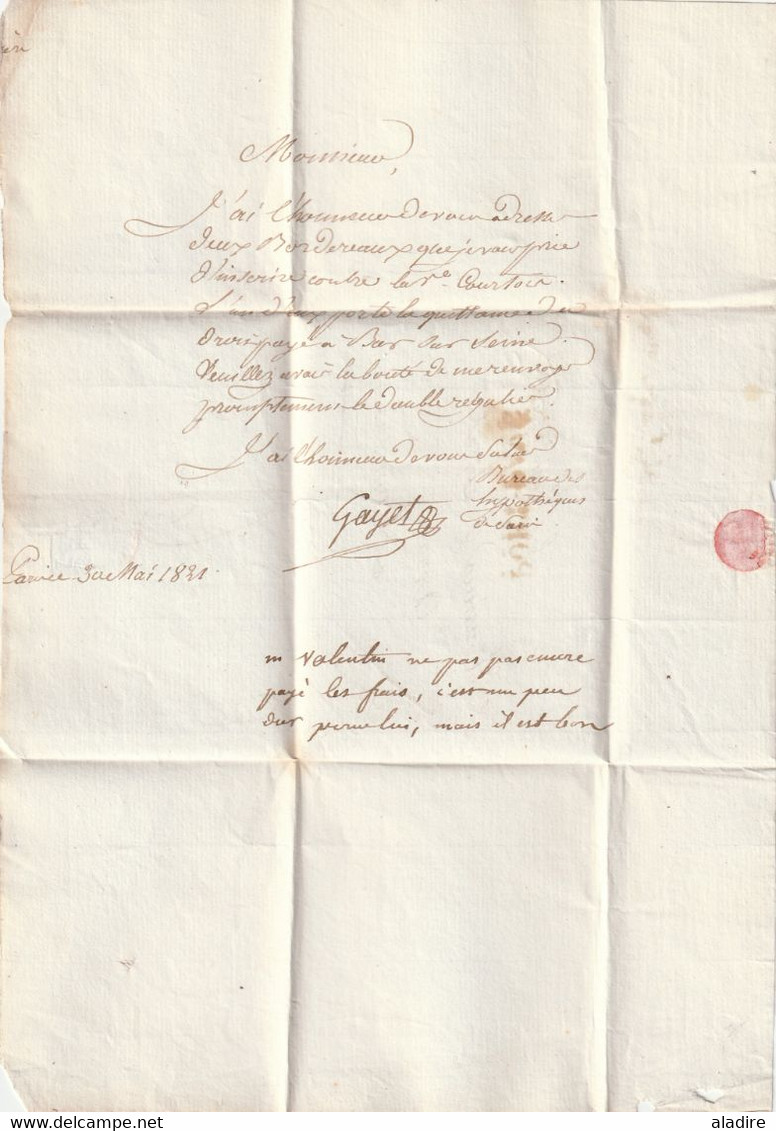 Monsieur,
J'ai l'honneur de vous adresser
deux Bordereaux que je vous prie
d'inscrire contre la Ve. Courtois.
L'un d'eux porte la quittance des
droits payé à Bar sur Seine.
Veuillez avoir la bonté de me renvoyer
promptement le double régulier.
J'ai l'honneur de vous saluer
Bureau des
hypothèques
Gayet
de
30 Mai 1821.
m Valentin ne pas pas encore
payé les frais, c'est un peu
dur pour lui, mais il est bon
© aladire
delcampe.net